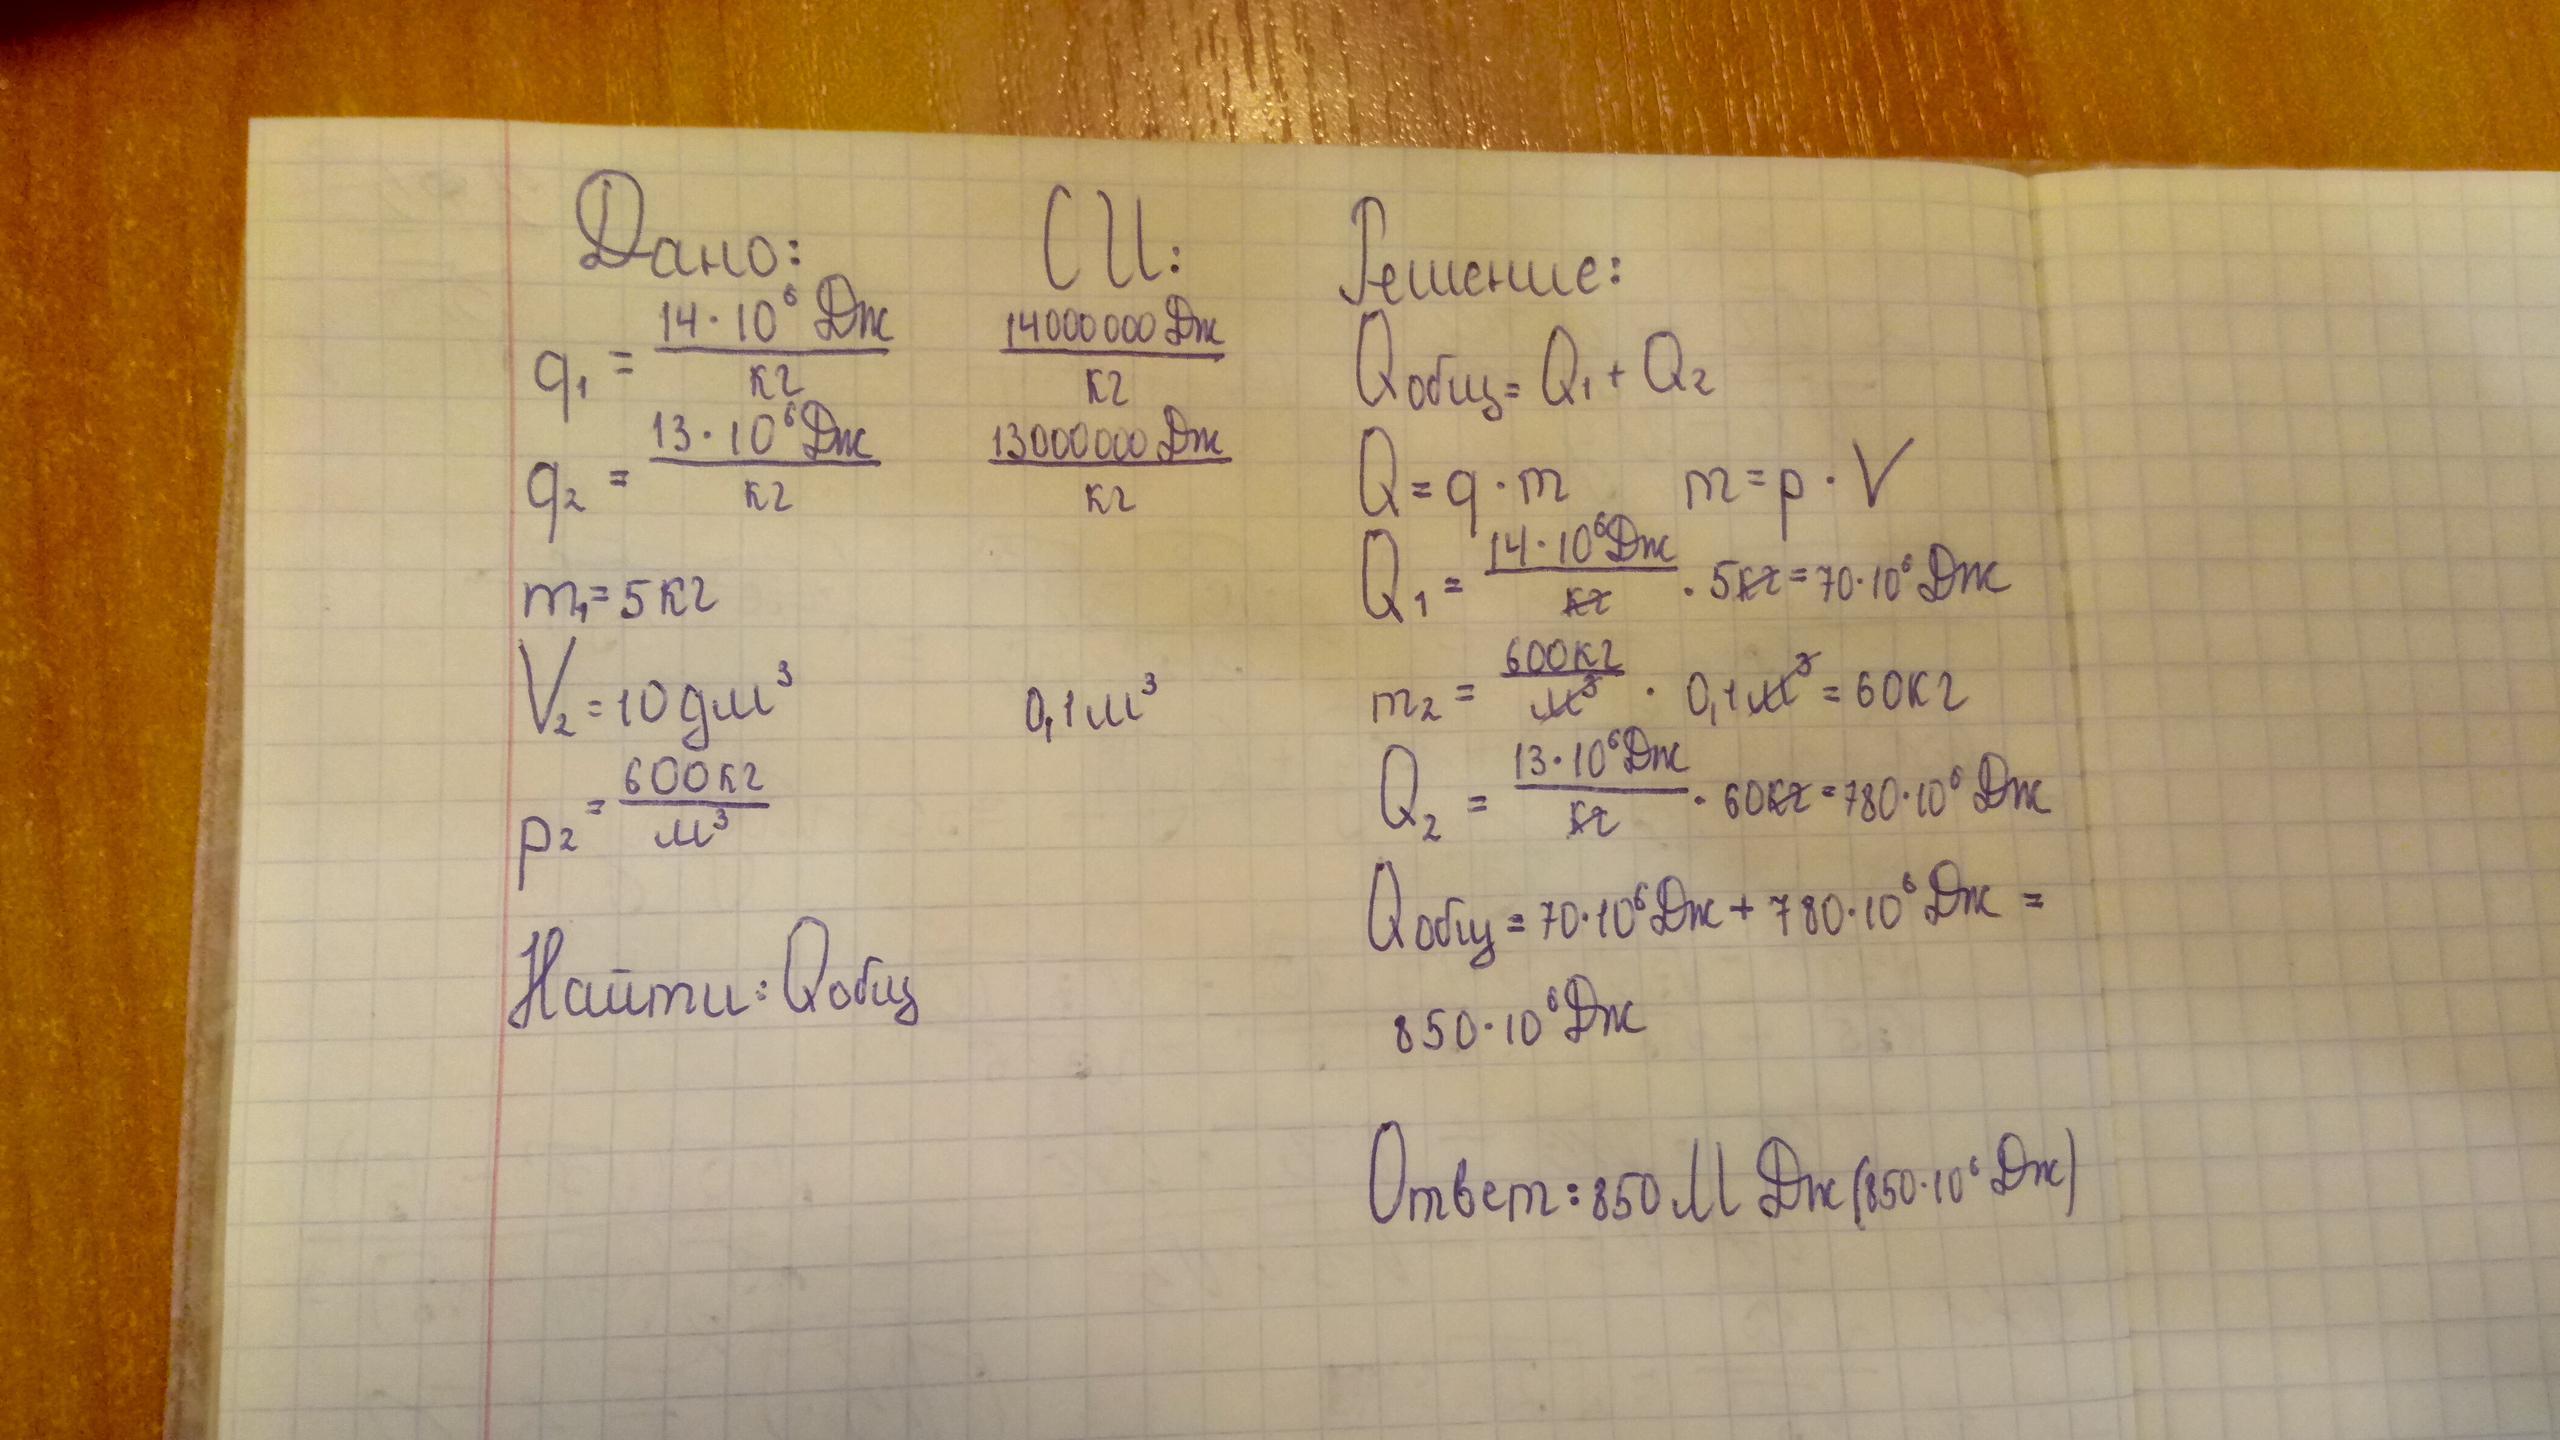 Дано:
q₁ = 14·10⁶ Дж/кг
q₂ = 13·10⁶ Дж/кг
m₁=5кг
V₂=10дм³
p₂=600кг/м³
Найти: Qобщ
СИ:
14000000Дж/кг
13000000Дж/кг
0,1м³
Решение:
Qобщ=Q₁+Q₂
Q=q·m m=p·V
Q₁ = 14·10⁶Дж/кг · 5кг=70·10⁶Дж
m₂ = 600кг/м³ · 0,1м³=60кг
Q₂ = 13·10⁶Дж/кг · 60кг=780·10⁶Дж
Qобщ=70·10⁶Дж+780·10⁶Дж =
850·10⁶Дж
Ответ: 850 М Дж (850·10⁶ Дж)